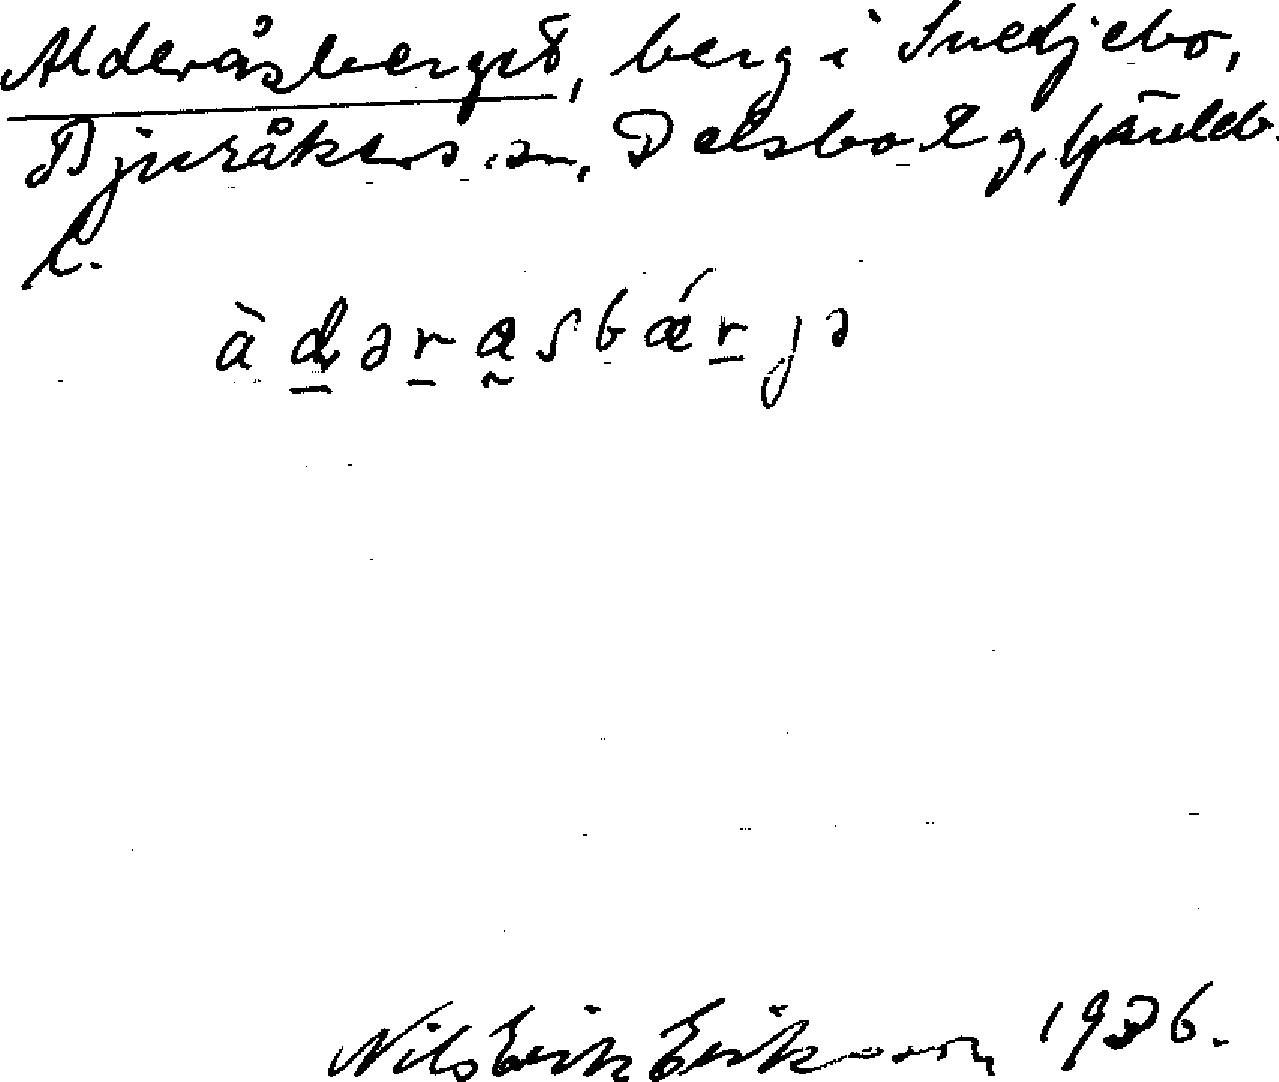 Alderåsberget, berg i Svedjebo,
Bjuråkers sn, Delsbo tg, Gävleb.
l.
àdərasbǽrjə
Nils Erik Eriksson 1936.